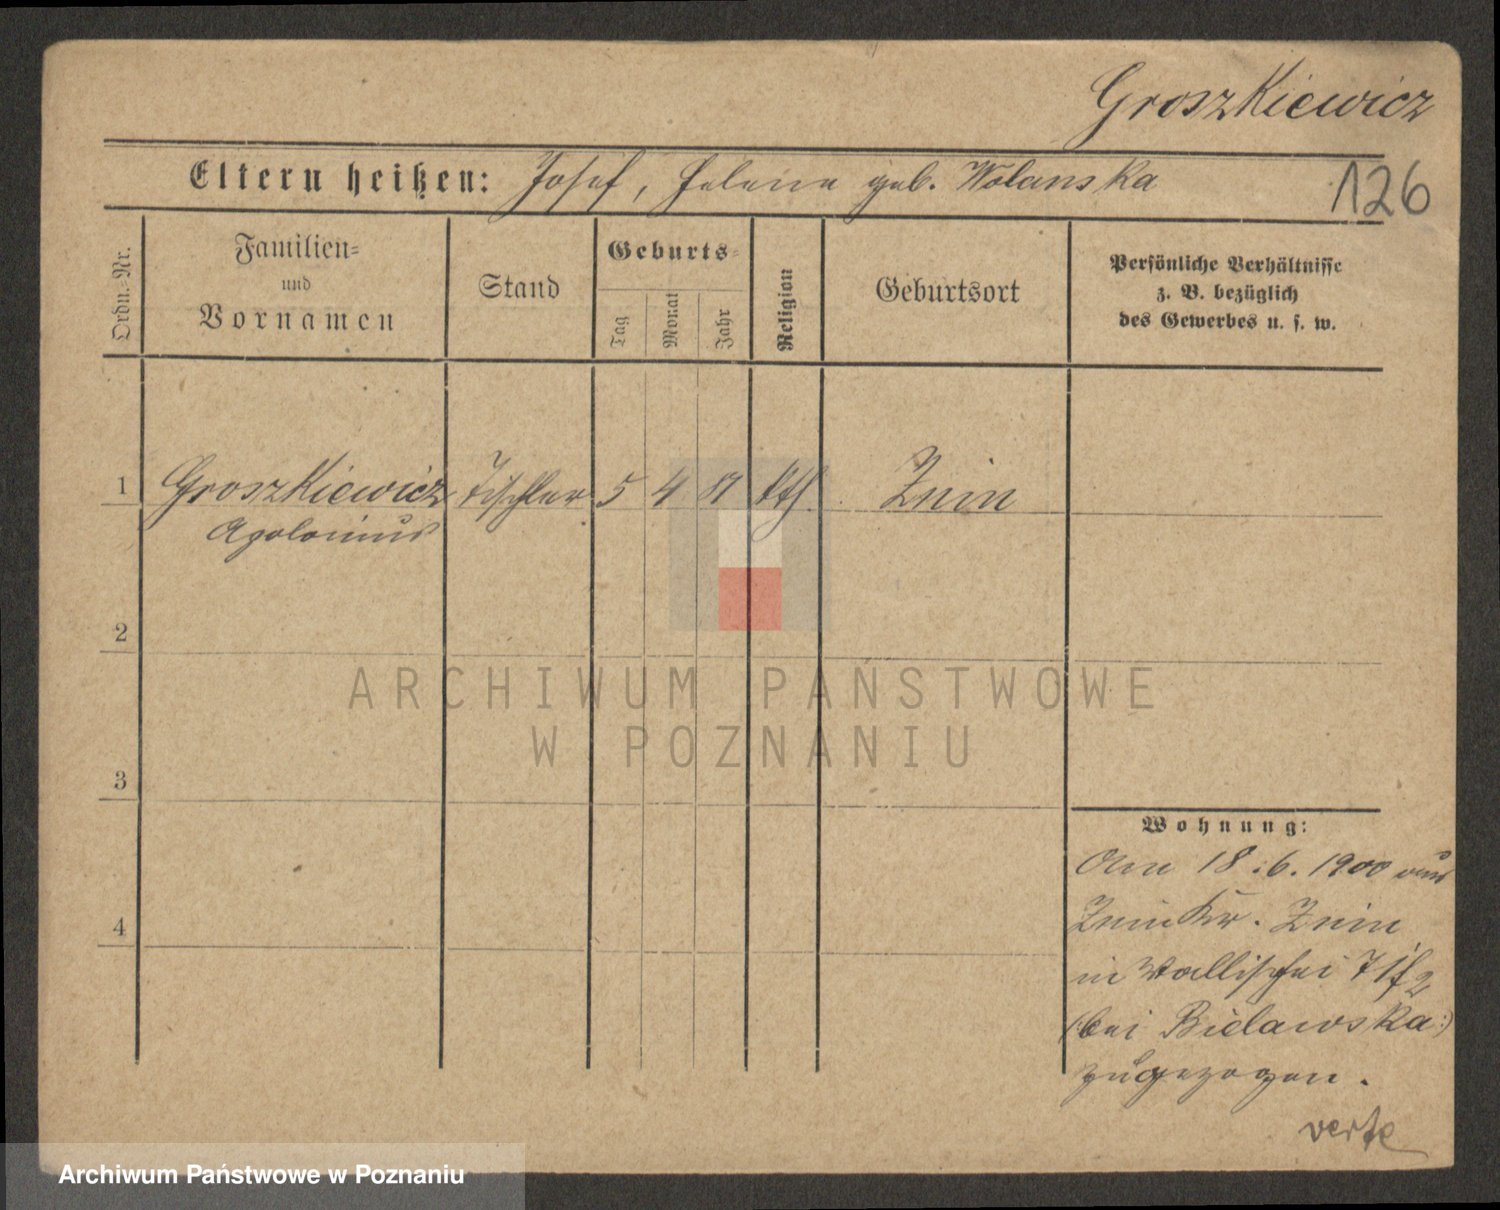 Groszkiewicz
Eltern heißen: Josef, Helene geb. Wolanska
126
Ordn.-Nr.
Familien-
und
Vornamen
Stand
Geburts-
Tag
Monat
Jahr
Religion
Geburtsort
Persönliche Verhältnisse
z. B. bezüglich
des Gewerbes u. s. w.
1 Groszkiewicz Tischler 5 4 81 kth Znin
Apolonius
2
3
4
Wohnung:
Am 18.6.1900 aus
Znin Kr. Znin
in Wallischei
(:bei Bielawska:)
zugezogen.
verte
ARCHIWUM PAŃSTWOWE
W POZNANIU
Archiwum Państwowe w Poznaniu